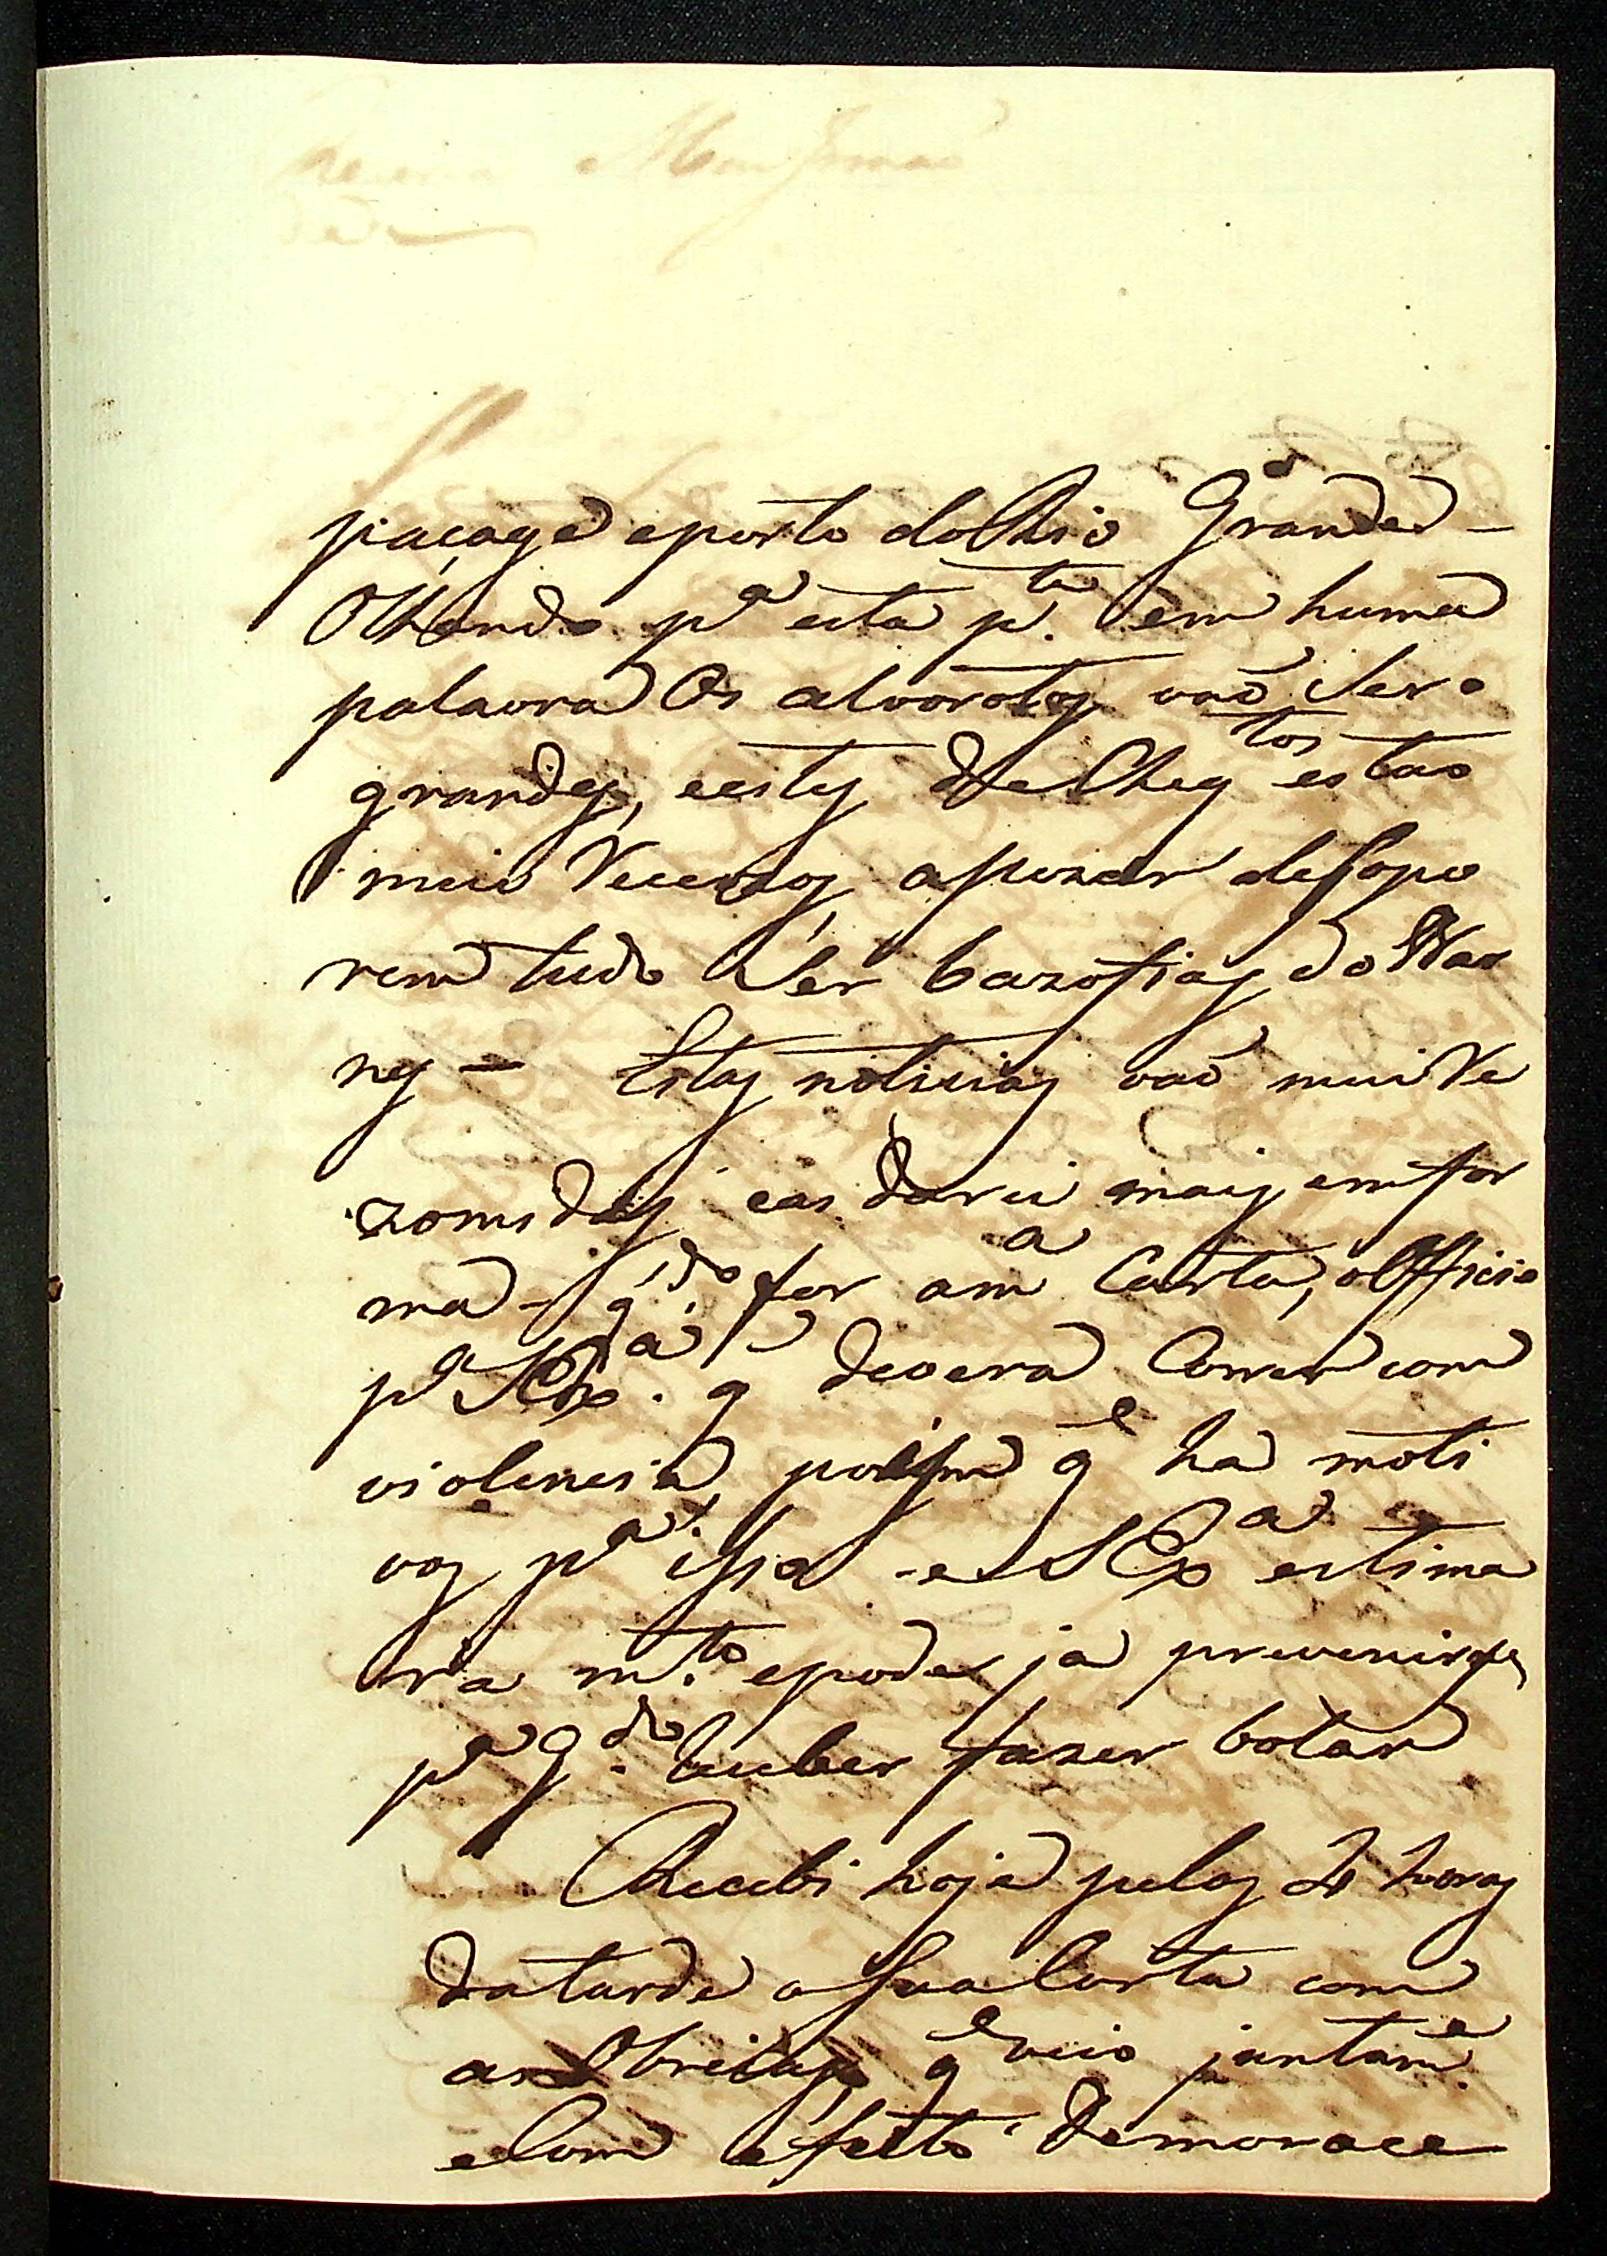 paçage e porto do Rio Grande –
Olhando p.ª esta p.te em huma
palavra Os alvorotos vaõ Ser
grandes, e estes Delles estaõ
mui Vecozos apezar de Sopo
rem tudo Ser bazofias do Nar
nes – Estas noticias vaõ mui Ve
zomidas e as darei mais em for
ma – q.do for a m.a Carta, o Officio
p.ª S Ex.ª q devera Correr com
violencia, posisme q.e ha moti
vos p.ª isso – e S Ex.ª estima
ra m.to e pode ja prevenirse
p.ª q.do huber fazer botar
Recebi hoje pelas 2 horas
da tarde a Sua Carta com
as Obreias, q.e veio juntam.e
e Com efeito demorace